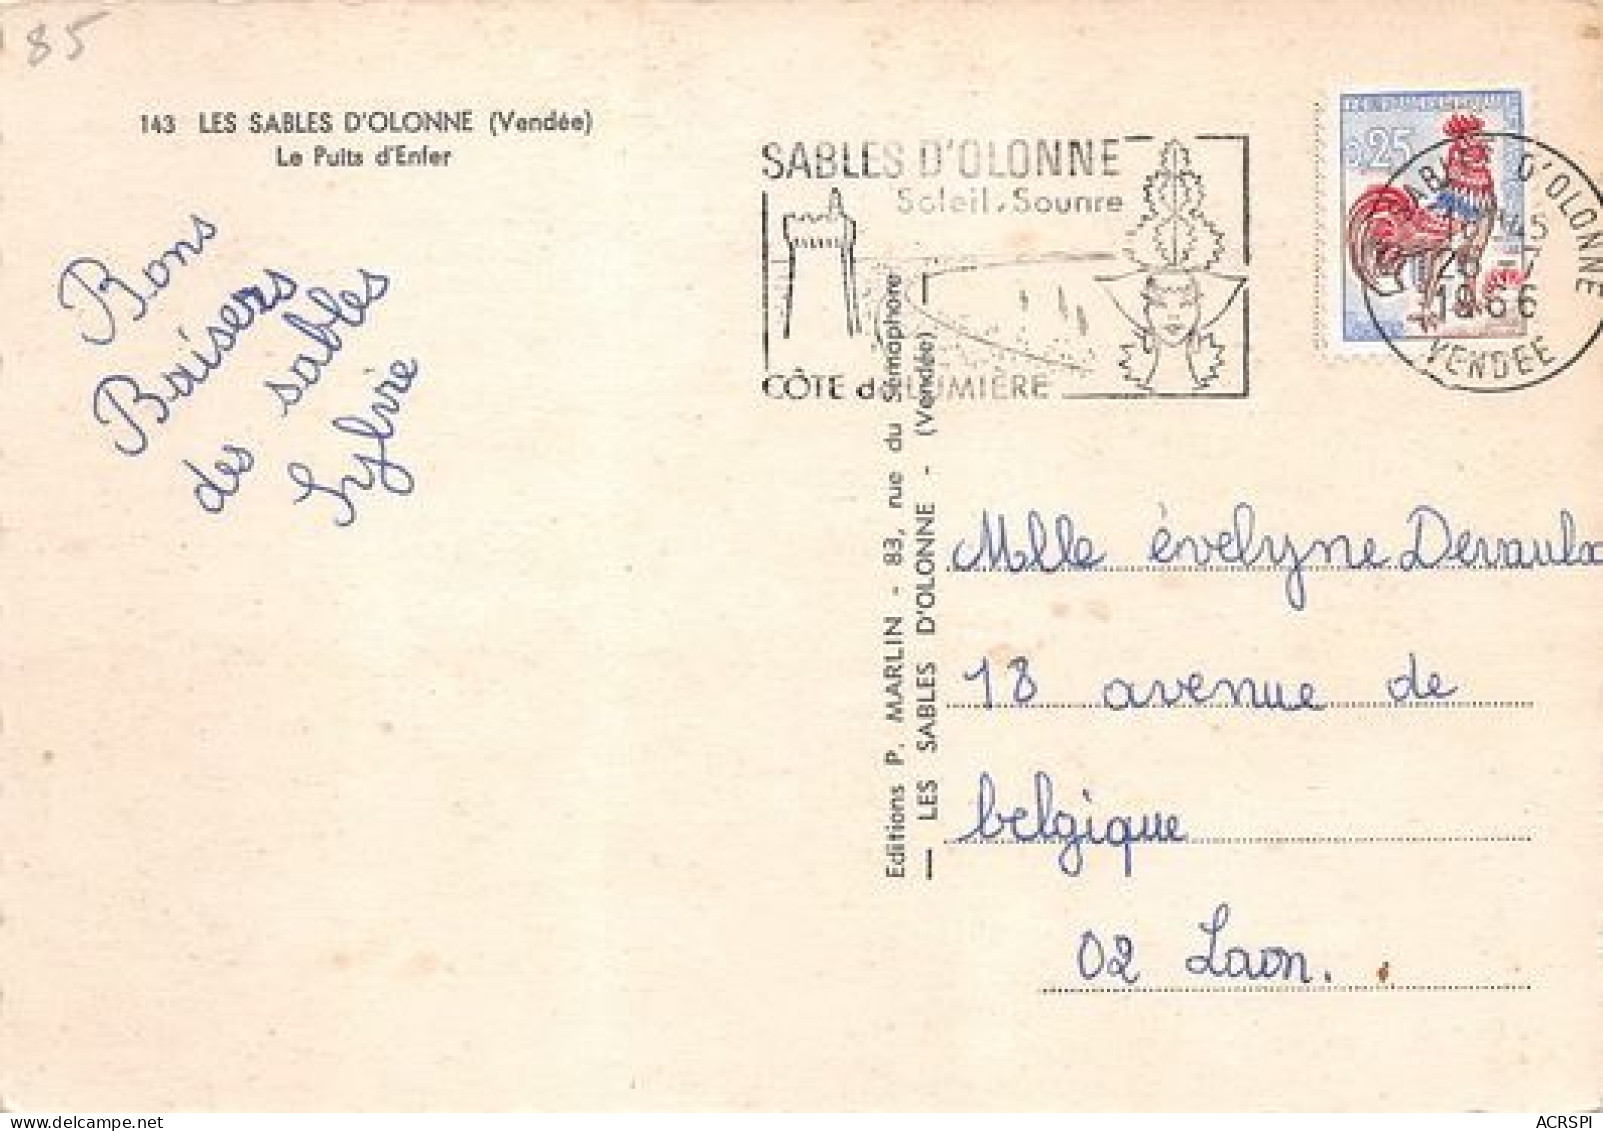 85
143 LES SABLES D'OLONNE (Vendée)
Le Puits d'Enfer
Bons
Baisers
des sables
Sylvie
SABLES D'OLONNE
Soleil, Sourire
CÔTE de LUMIÈRE
0,25
SABLES D'OLONNE
45
1966
VENDEE
Editions P. MARLIN - 83, rue du Sémaphore
— LES SABLES D'OLONNE - (Vendée)
Mlle évelyne Devaulx
18 avenue de
belgique
02 Laon.
ACRSPI